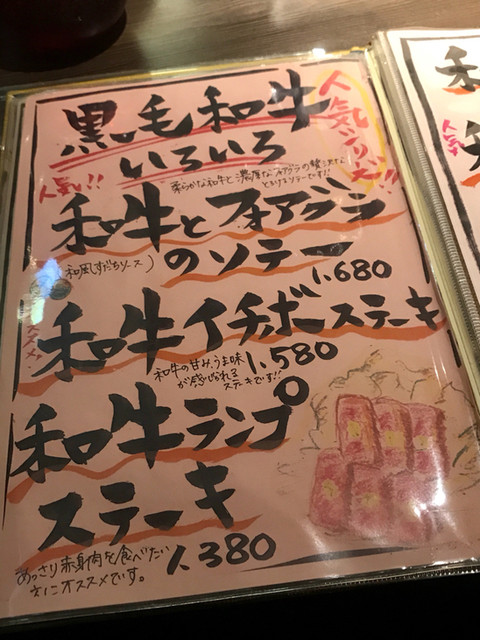 黒毛和牛
いろいろ
人気シリーズ!!
人気!!
柔らかな和牛と濃厚なフォアグラの贅沢な
とろけるソテーです!!
和牛とフォアグラ
のソテー
和風すだちソース)
1,680
オススメ!
和牛イチボステーキ
和牛の甘み、うま味
が感じられる
ステーキです!!
1,580
和牛ランプ
ステーキ
あっさり赤身肉を食べたい
方にオススメです。
1,380
和
人気